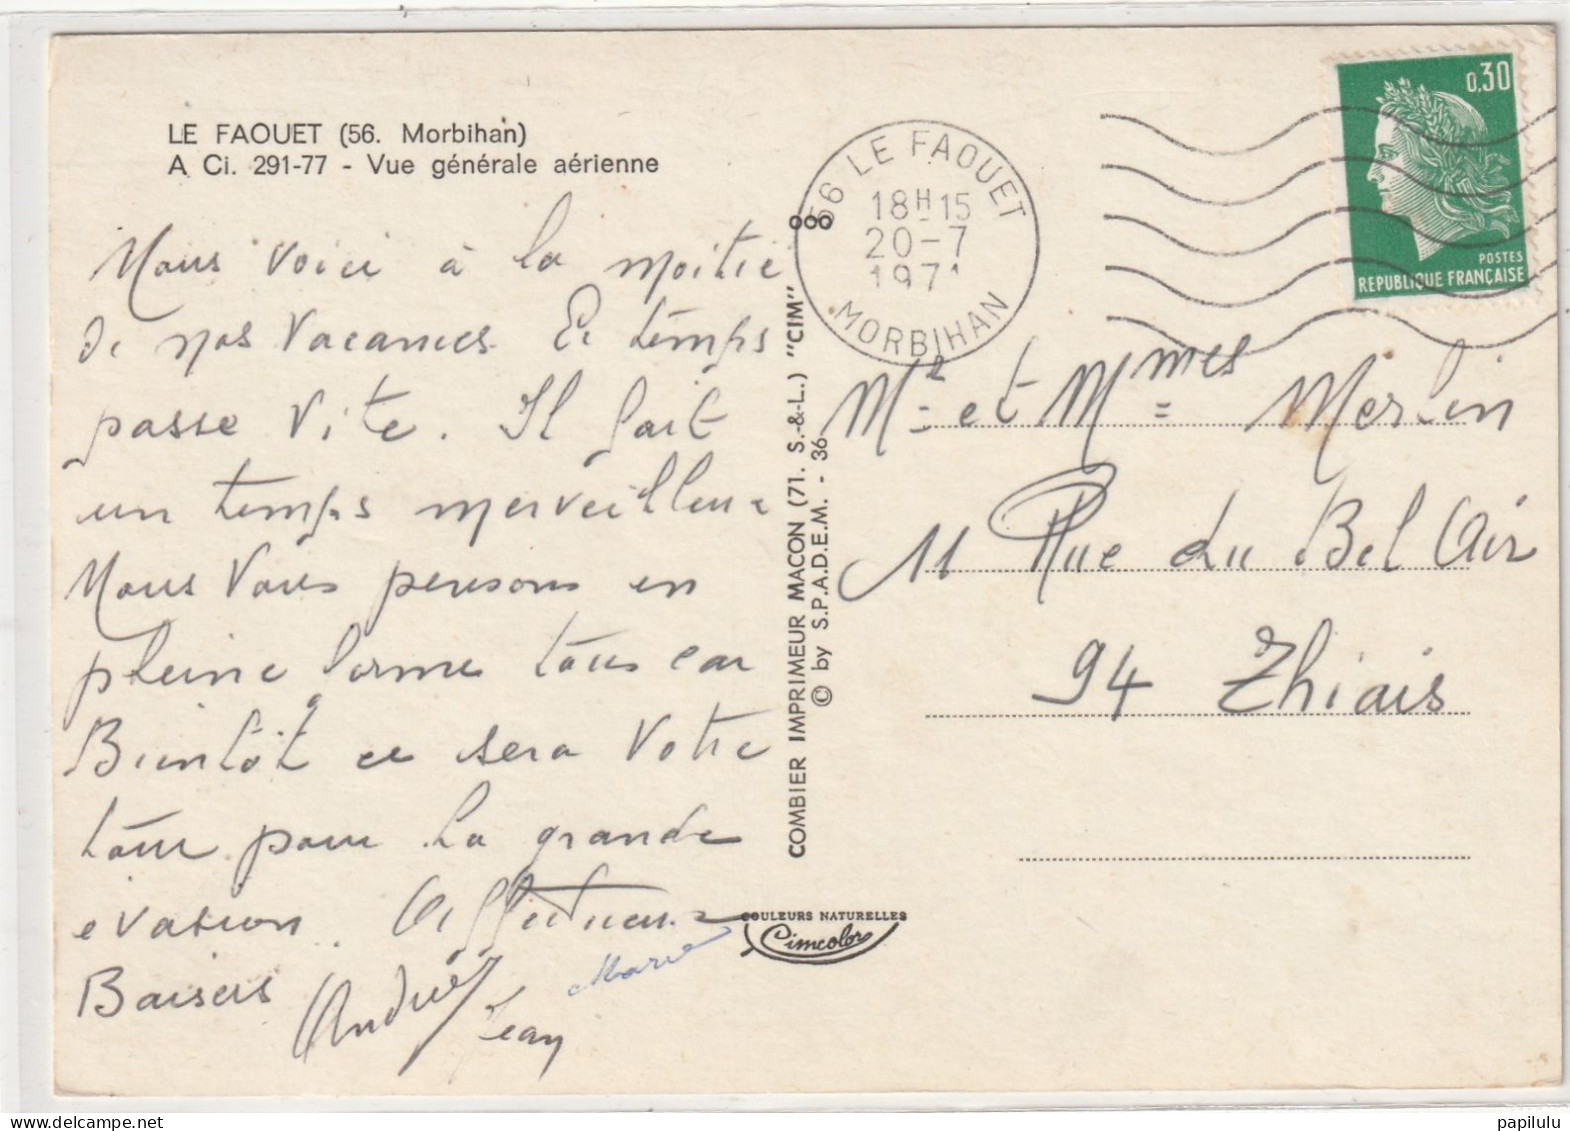 LE FAOUET (56. Morbihan)
A Ci. 291-77 - Vue générale aérienne
Nous voici à la moitié
de nos vacances. Le temps
passe vite. Il fait
un temps merveilleux
Nous vous pensons en
pleine forme tous car
Bientôt ce sera votre
tour pour la grande
évasion. Affectueux
Baisers
Andrée
Jean
Marie
COMBIER IMPRIMEUR MACON (71. S.-&-L.) "CIM"
© by S.P.A.D.E.M. - 36
COULEURS NATURELLES
Cimcolor
56 LE FAOUET
18H15
20-7
1971
MORBIHAN
0,30
POSTES
REPUBLIQUE FRANÇAISE
Mr et Mmes Merlin
11 Rue du Bel Air
94 Thiais
delcampe.net
papilulu